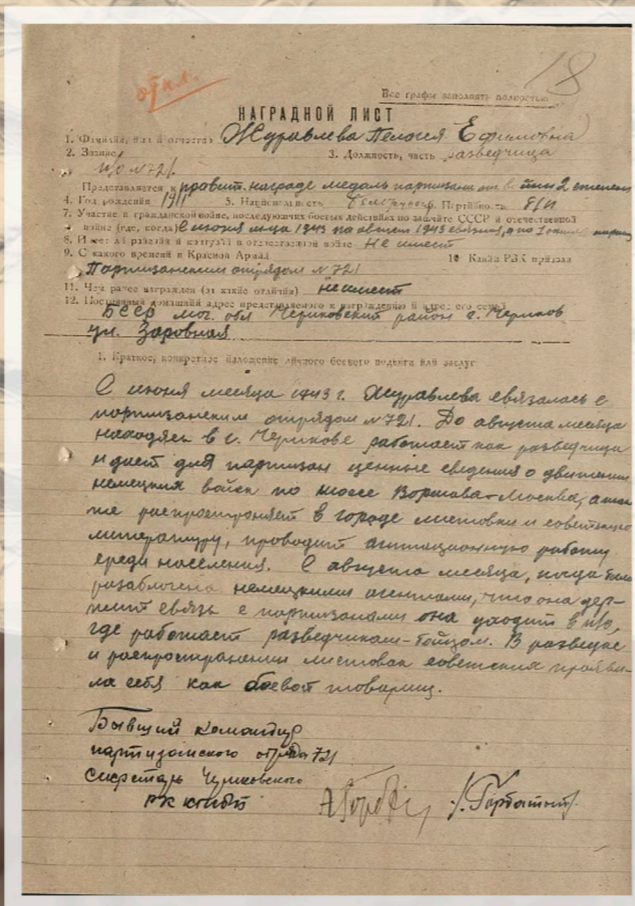 18
откл.
Все графы заполнять полностью
НАГРАДНОЙ ЛИСТ
1. Фамилия, имя и отчество Журавлева Пелогия Ефимовна
2. Звание 3. Должность, часть разведчица
п/о №721
Представляется к правит. награде медаль партизан от. в. 2 степени
4. Год рождения 1911 5. Национальность белорусска Партийность б/п
7. Участие в гражданской войне, последующих боевых действиях по защите СССР и отечественной
войне (где, когда) С июня м-ца 1943 по август 1943
8. Имеет ли ранения и контузии в отечественной войне не имеет
9. С какого времени в Красной Армии 10. Каким РВК призван
Партизанским отрядом №721
11. Чем ранее награжден (за какие отличия) не имеет
12. Постоянный домашний адрес представляемого к награждению и адрес его семьи
БССР мог. обл Чериковский район г. Чериков
ул. Заровная
1. Краткое, конкретное изложение личного боевого подвига или заслуг
С июня месяца 1943 г. Журавлева связалась с
партизанским отрядом №721. До августа месяца
находясь в г. Черикове работает как разведчица
и дает для партизан ценные сведения о движении
немецких войск по шоссе Варшава-Москва, а так
же распространяет в городе листовки и советскую
литературу, проводит агитационную работу
среди населения. С августа месяца, когда была
разаблочена немецкими агентами, что она дер-
жит связь с партизанами она уходит в п/о,
где работает разведчиком-бойцом. В разведке
и распространении листовок советских прояви-
ла себя как боевой товарищ.
Бывший командир
партизанского отряда 721
секретарь Чериковского
РК КП(б)Б /. Горбатов